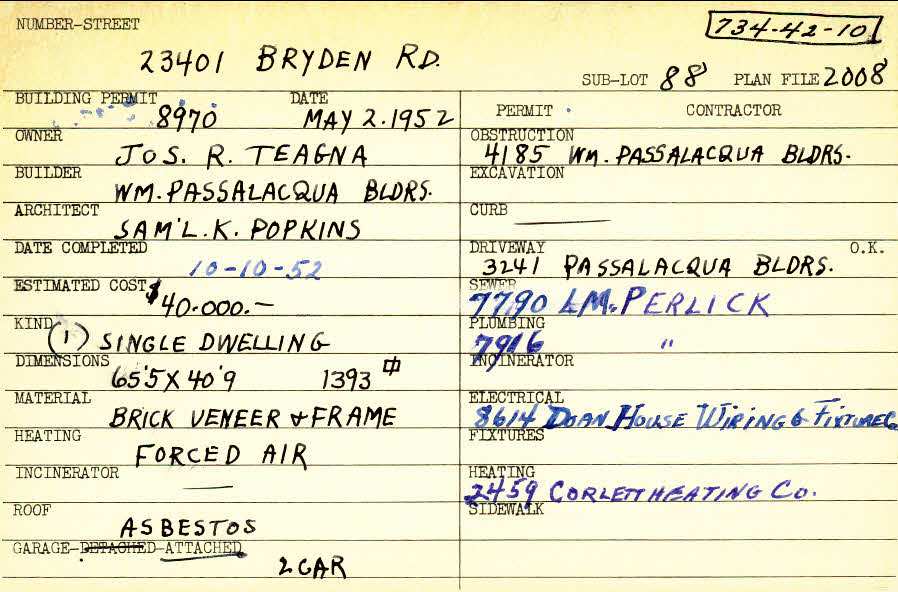 NUMBER-STREET
734-42-10
23401 BRYDEN RD.
SUB-LOT 88 PLAN FILE 2008
BUILDING PERMIT DATE
8970 MAY 2. 1952
OWNER
JOS. R. TEAGNA
BUILDER
WM. PASSALACQUA BLDRS.
ARCHITECT
SAM'L. K. POPKINS
DATE COMPLETED
10-10-52
ESTIMATED COST
$40.000.—
KIND
(1) SINGLE DWELLING
DIMENSIONS
65'5 X 40'9 1393
MATERIAL
BRICK VENEER & FRAME
HEATING
FORCED AIR
INCINERATOR
—
ROOF
ASBESTOS
GARAGE-DETACHED-ATTACHED
2 CAR
PERMIT CONTRACTOR
OBSTRUCTION
4185 WM. PASSALACQUA BLDRS.
EXCAVATION
CURB
—
DRIVEWAY O.K.
3241 PASSALACQUA BLDRS.
SEWER
7790 LM. PERLICK
PLUMBING
7916 "
INCINERATOR
ELECTRICAL
8614 DOAN HOUSE WIRING & FIXTURE Co.
FIXTURES
HEATING
2459 CORLETT HEATING Co.
SIDEWALK